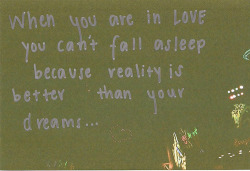 When you are in LOVE
you can't fall asleep
because reality is
better than your
dreams...